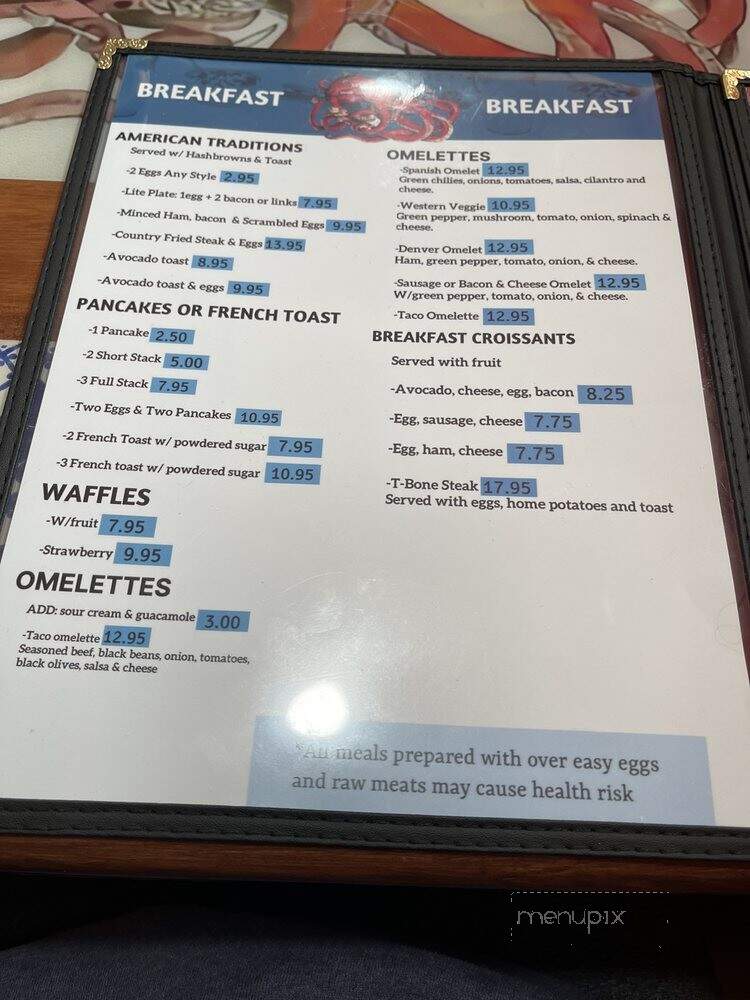 BREAKFAST
BREAKFAST
AMERICAN TRADITIONS
Served w/ Hashbrowns & Toast
-2 Eggs Any Style 2.95
-Lite Plate: 1egg + 2 bacon or links 7.95
-Minced Ham, bacon & Scrambled Eggs 9.95
-Country Fried Steak & Eggs 13.95
-Avocado toast 8.95
-Avocado toast & eggs 9.95
PANCAKES OR FRENCH TOAST
-1 Pancake 2.50
-2 Short Stack 5.00
-3 Full Stack 7.95
-Two Eggs & Two Pancakes 10.95
-2 French Toast w/ powdered sugar 7.95
-3 French toast w/ powdered sugar 10.95
WAFFLES
-W/fruit 7.95
-Strawberry 9.95
OMELETTES
ADD: sour cream & guacamole 3.00
-Taco omelette 12.95
Seasoned beef, black beans, onion, tomatoes,
black olives, salsa & cheese
OMELETTES
-Spanish Omelet 12.95
Green chilies, onions, tomatoes, salsa, cilantro and
cheese.
-Western Veggie 10.95
Green pepper, mushroom, tomato, onion, spinach &
cheese.
-Denver Omelet 12.95
Ham, green pepper, tomato, onion, & cheese.
-Sausage or Bacon & Cheese Omelet 12.95
W/green pepper, tomato, onion, & cheese.
-Taco Omelette 12.95
BREAKFAST CROISSANTS
Served with fruit
-Avocado, cheese, egg, bacon 8.25
-Egg, sausage, cheese 7.75
-Egg, ham, cheese 7.75
-T-Bone Steak 17.95
Served with eggs, home potatoes and toast
*All meals prepared with over easy eggs
and raw meats may cause health risk
menupix